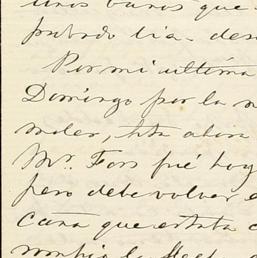 unos baños que
probado tia. des
Por mi ultima
Domingo por la
moler, hta ahora
Mr. Fors fué hoy
pero debe volver e
caña que estaba c